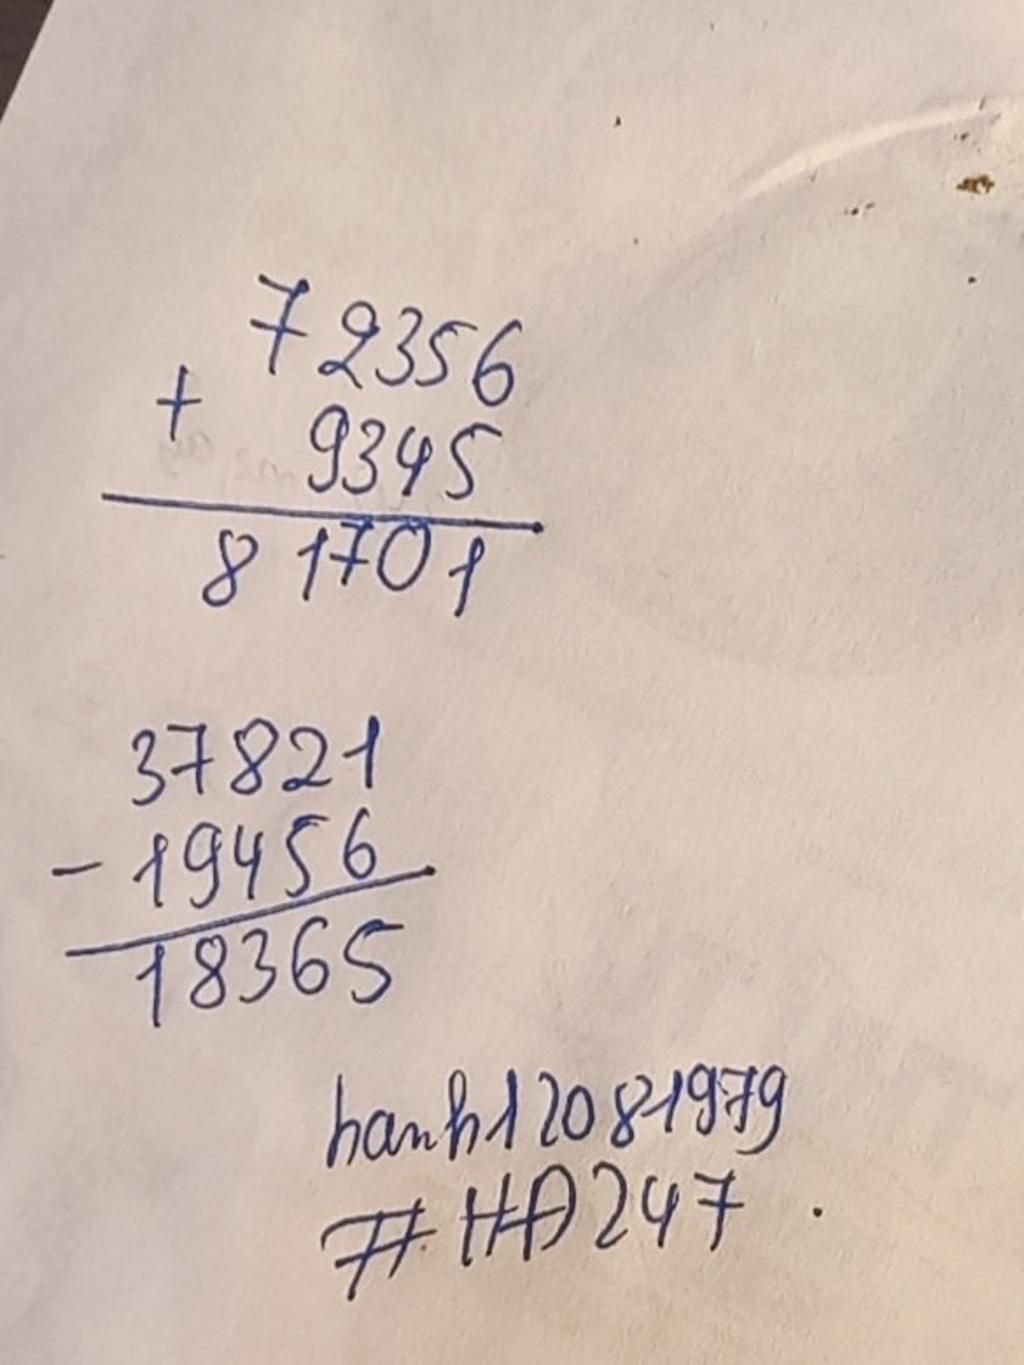 72356
+ 9345
81701
37821
- 19456
18365
hanh12081979
#HA247.